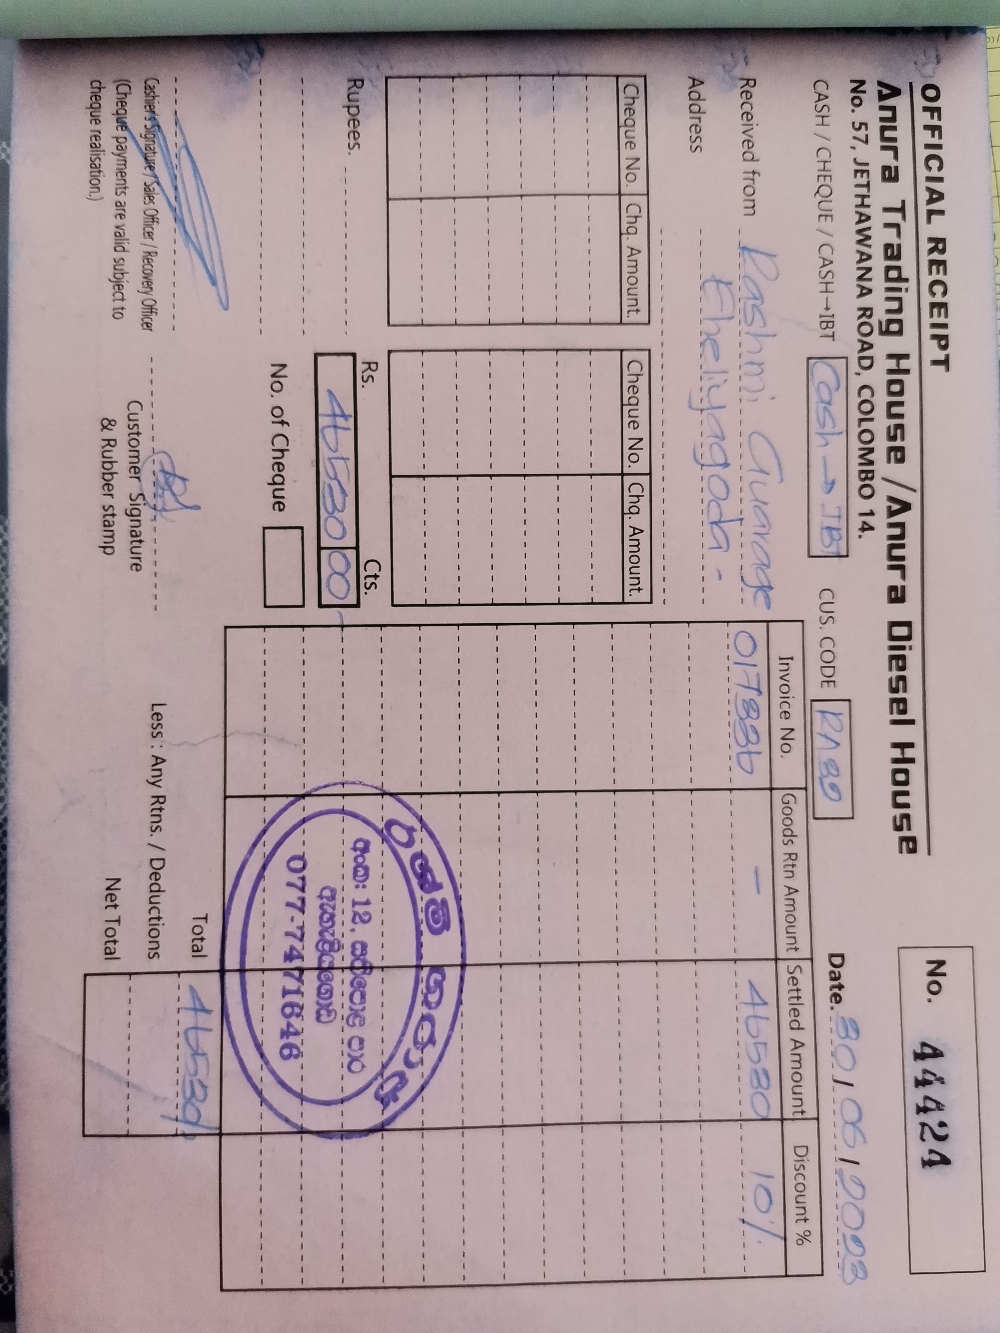 OFFICIAL RECEIPT
Anura Trading House / Anura Diesel House
No. 57, JETHAWANA ROAD, COLOMBO 14.
No. 44424
CASH / CHEQUE / CASH→IBT Cash → IBT CUS. CODE RA89
Date. 30/06/2023
Received from Rashmi Guarage
Address Eheliyagoda -
Cheque No. Chq. Amount. Cheque No. Chq. Amount.
Invoice No. Goods Rtn Amount Settled Amount Discount %
017336 - 46530 10%
Rs. Cts.
Rupees. 46530 00
No. of Cheque
රශ්මි ගරාජ්
අංක: 12,
077-7471646
Total 46530/-
Less : Any Rtns. / Deductions
Net Total
Cashier's Signature / Sales Officer / Recovery Officer
(Cheque payments are valid subject to
cheque realisation.)
Customer Signature
& Rubber stamp